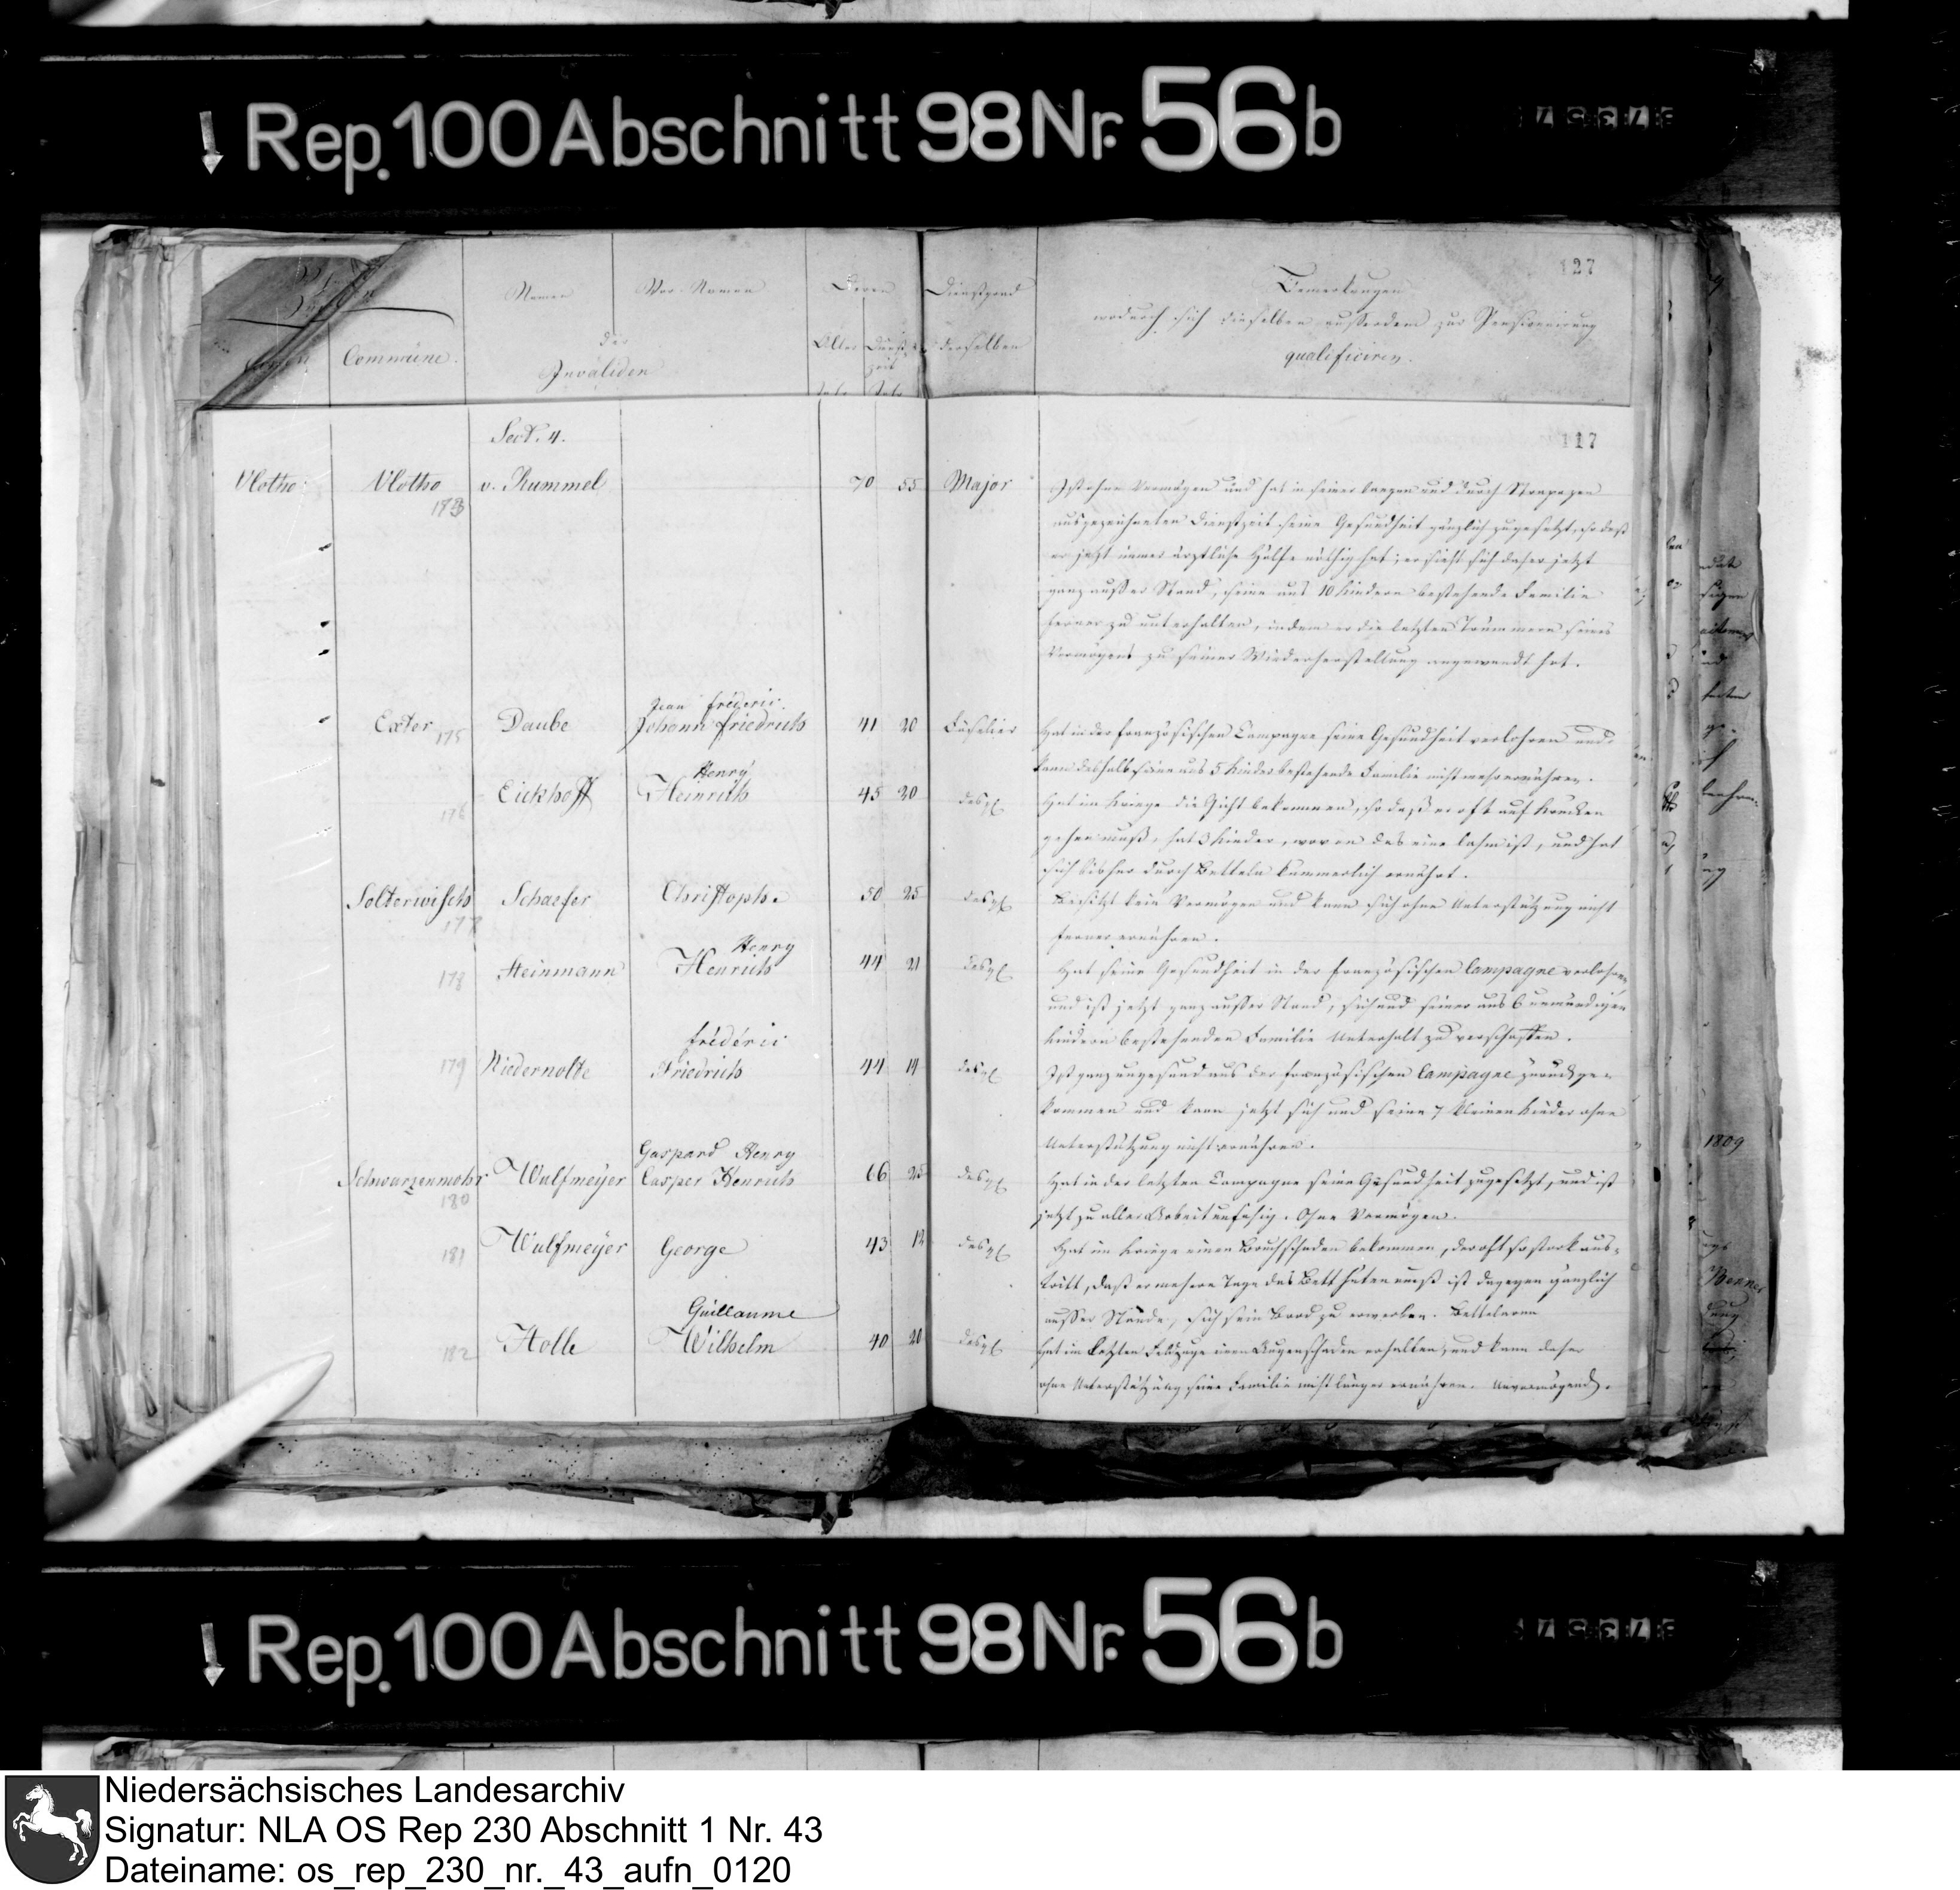 Rep. 100 Abschnitt 98 Nr. 56 b
127
Namen
Vor-Namen
Deren
Dienstgrad
Bemerkungen
wodurch sich dieselben ausserdem zur Pensionirung
Commüne.
der
Invaliden
Alter
Dienst-
zeit
derselben
qualificiren.
Jahr Jahr
Sect. 4.
117
Vlotho
Vlotho
v. Rummel
70 55 Major
183
Ist ohne Vermögen und hat in seiner langen und durch Strapazen
ausgezeichneten Dienstzeit seine Gesundheit gänzlich zugesetzt, so daß
er jetzt immer ärztliche Hülfe nöthig hat; er sieht sich daher jetzt
ganz ausser Stand, seine aus 10 Kindern bestehende Familie
ferner zu unterhalten, indem er die letzten Trümmern seines
Vermögens zu seiner Wiederherstellung angewandt hat.
Jean fréderic
Exter 175 Daube Johann Friedrich 41 20 Füselier
Hat in der französischen Campagne seine Gesundheit verlohren und
kann deshalb seine aus 5 Kinder bestehende Familie nicht mehr ernähren.
Henry
176 Eickhoff Heinrich 45 20 desgl
Hat im Kriege die Gicht bekommen, so daß er oft auf Krücken
gehen muß, hat 3 Kinder, wovon das eine lahm ist, und hat
sich bisher durch Betteln kümmerlich ernährt.
Solterwisch 177 Schaefer Christoph 50 25 desgl
Besitzt kein Vermögen und kann sich ohne Unterstützung nicht
ferner ernähren.
Henry
178 Steinmann Henrich 44 21 desgl
Hat seine Gesundheit in der französischen Campagne verlohren
und ist jetzt ganz ausser Stand, sich und seiner aus 6 unmündigen
Kindern bestehenden Familie Unterhalt zu verschaffen.
fréderic
179 Niedernolte Friedrich 44 14 desgl
Ist ganz ungesund aus der französischen Campagne zurückge-
kommen und kann jetzt sich und seine 7 kleinen Kinder ohne
Unterstützung nicht ernähren.
Gaspard Henry
Schwarzenmohr 180 Wulfmeyer Casper Henrich 66 25 desgl
Hat in der letzten Campagne seine Gesundheit zugesetzt, und ist
jetzt zu aller Arbeit unfähig. Ohne Vermögen.
181 Wulfmeyer George 43 desgl
Hat im Kriege einen Bruchschaden bekommen, der oft so stark aus-
tritt, daß er mehrere Tage das Bett hüten muß ist dagegen gänzlich
ausser Stande, sich sein Brod zu erwerben. Bettelarm
Guillaume
182 Holle Wilhelm 40 20 desgl
Hat im letzten Feldzuge einen Augenschaden erhalten, und kann daher
ohne Unterstützung seine Familie nicht länger ernähren. Unvermögend.
1809
Rep. 100 Abschnitt 98 Nr. 56 b
Niedersächsisches Landesarchiv
Signatur: NLA OS Rep 230 Abschnitt 1 Nr. 43
Dateiname: os_rep_230_nr._43_aufn_0120